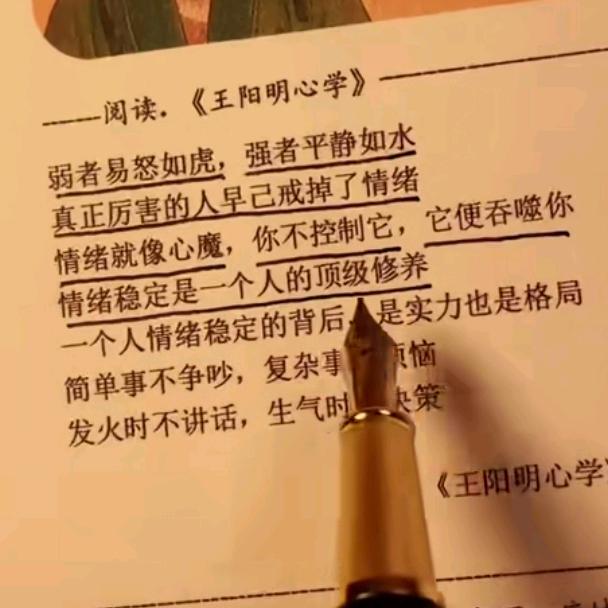 ——阅读.《王阳明心学》
弱者易怒如虎，强者平静如水
真正厉害的人早己戒掉了情绪
情绪就像心魔，你不控制它，它便吞噬你
情绪稳定是一个人的顶级修养
一个人情绪稳定的背后 是实力也是格局
简单事不争吵，复杂事 烦恼
发火时不讲话，生气时 决策
《王阳明心学》